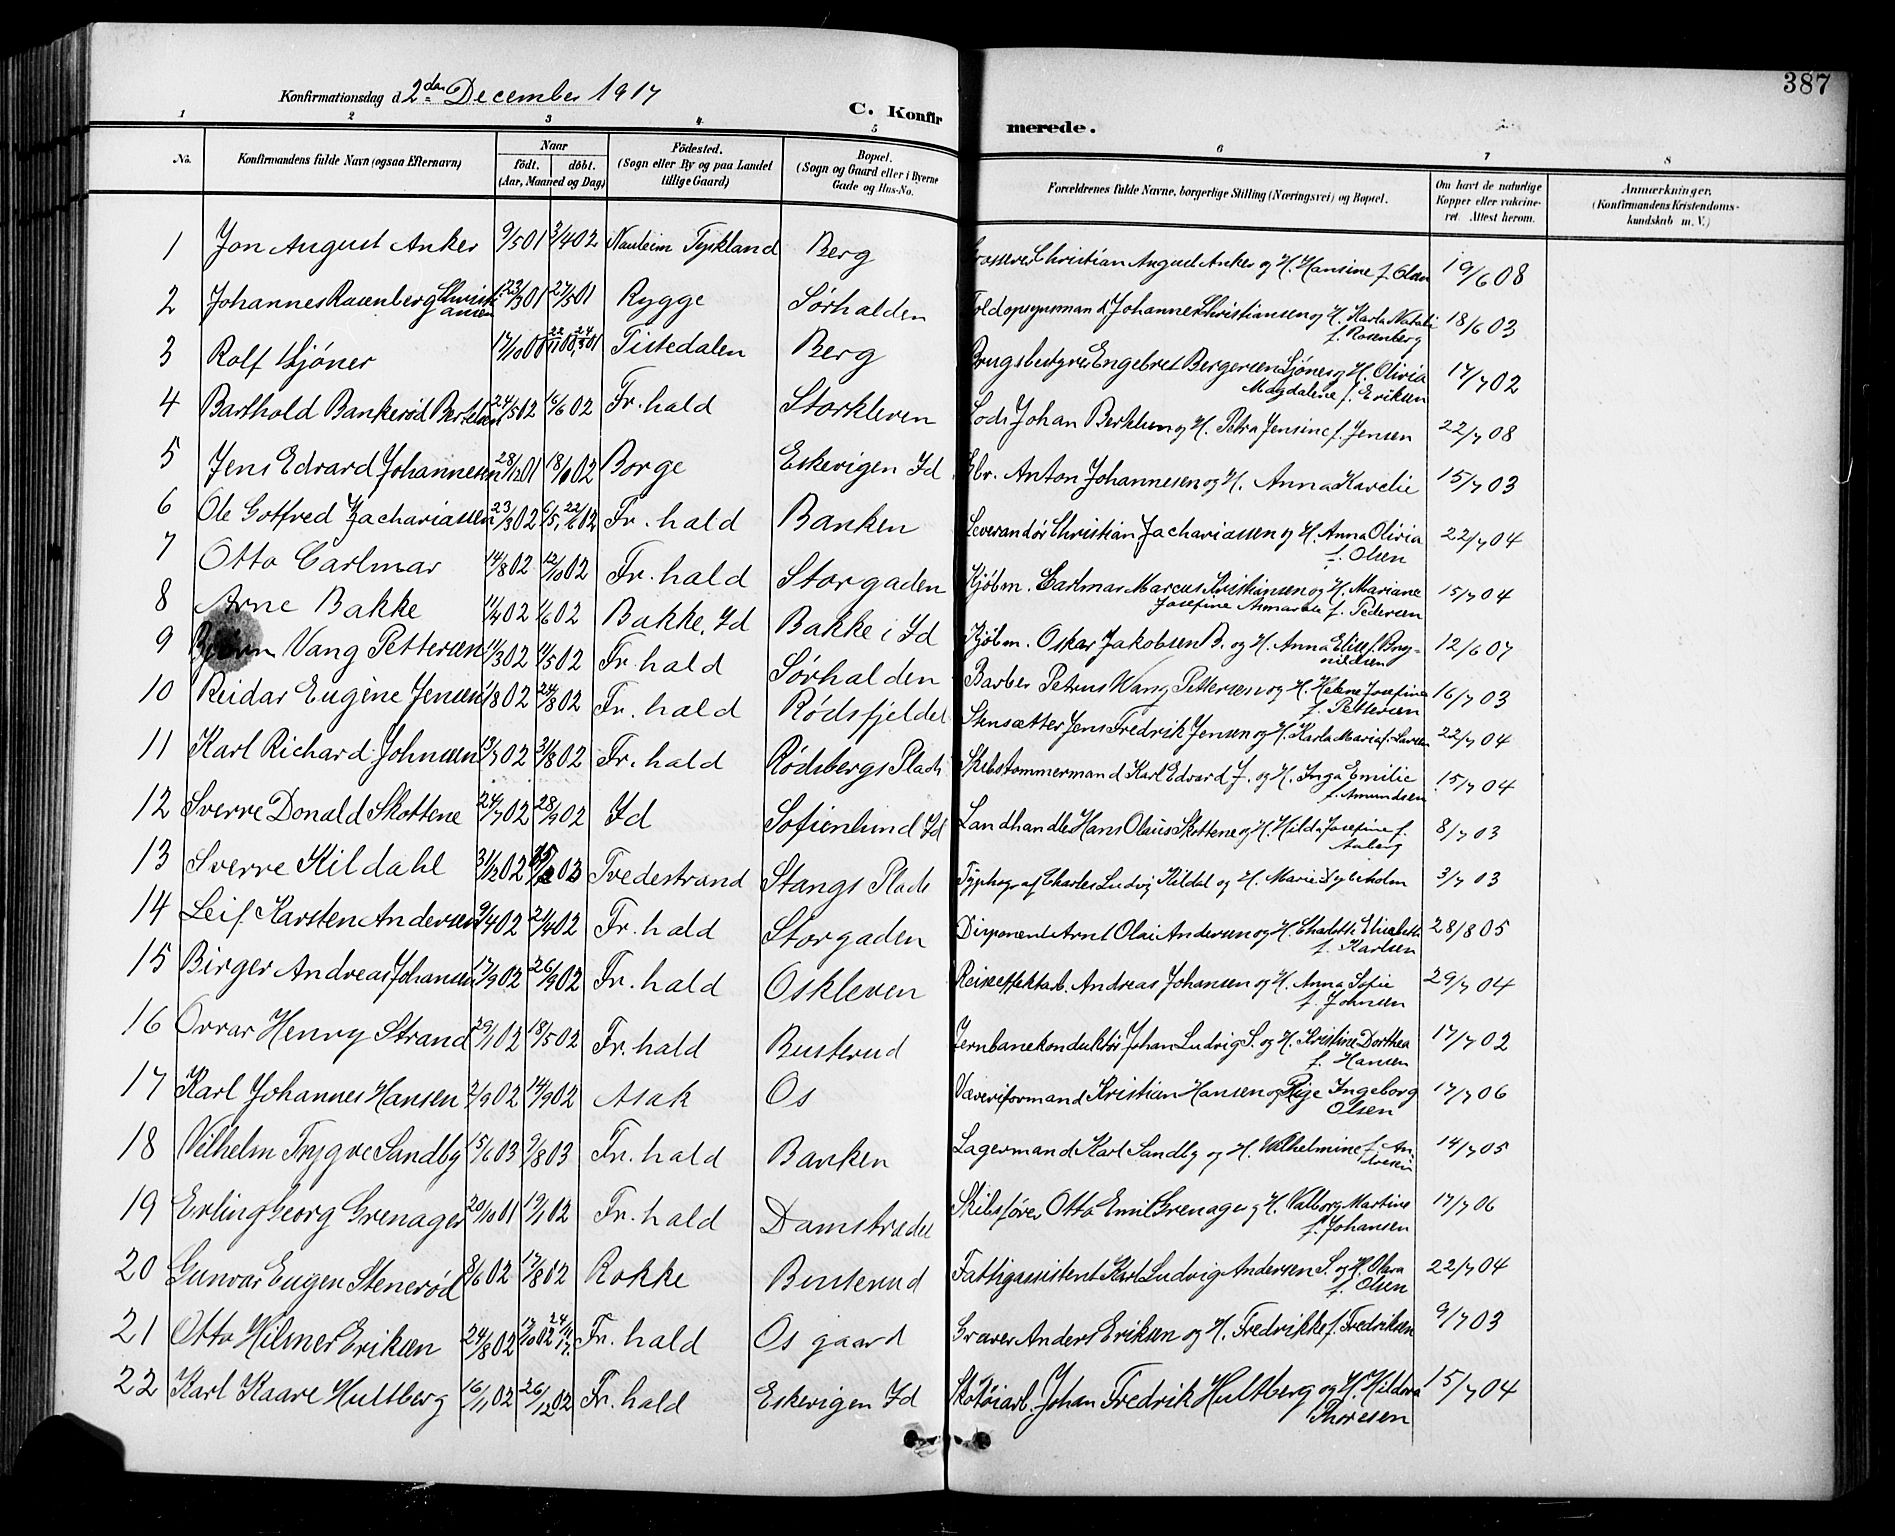 387
Konfirmationsdag d. 2den December 1917
C. Konfirmerede.
1 2 3 4 5 6 7 8
No. Konfirmandens fulde Navn (ogsaa Efternavn) Naar født. døbt. (Aar, Maaned og Dag) Fødested. (Sogn eller By og paa Landet tillige Gaard) Bopæl. (Sogn og Gaard eller i Byerne Gade og Hus-No. Forældrenes fulde Navne, borgerlige Stilling (Næringsvei) og Bopæl. Om havt de naturlige Kopper eller vakcineret. Attest herom. Anmærkninger. (Konfirmandens Kristendomskundskab m. V.)
1 Jon August Anker 9/5 01 3/4 02 Nauheim Tyskland Berg Grosserer Christian August Anker og H. Hansine f. Olsen 19/6 08
2 Johannes Rosenberg Christiansen 23/3 01 27/5 01 Rygge Sørhalden Toldopsynsmand Johannes Christiansen og H. Karla Natali f. Rosenberg 18/6 03
3 Rolf Sjøner 17/10 00 Tistedalen Berg Brugsbestyrer Engebret Bergersen Sjøner og H. Olivia Magdalene f. Eriksen 17/7 02
4 Barthold Bankerød Bertelsen 24/5 02 16/6 02 Fr.hald Storkleven Lods Johan Bertelsen og H. Petra Jensine f. Jensen 22/7 08
5 Jens Edvard Johannesen 28/12 01 18/1 02 Borge Eskevigen Id Anton Johannesen og H. Anna Karelie 15/7 03
6 Ole Gotfred Zachariassen 23/3 02 6/5, 22/6 02 Fr.hald Banken Leverandør Christian Zachariassen og H. Anna Olivia f. Olsen 22/7 04
7 Otto Carlmar 14/8 02 12/10 02 Fr.hald Storgaden Kjøbm. Carlmar Marcus Kristiansen og H. Mariane Josefine Annarste f. Pedersen 15/7 04
8 Arne Bakke 11/4 02 1/6 02 Bakke, Id Bakke i Id Kjøbm. Oskar Jakobsen B. og H. Anna Elise f. Brynildsen 12/6 07
9 Bjørn Vang Pettersen 11/3 02 11/5 02 Fr.hald Sørhalden Barber Petrus Wang Pettersen og H. Helene Josefine f. Pettersen 16/7 03
10 Reidar Eugène Jensen 1/8 02 24/8 02 Fr.hald Rødsfjeldet Stensætter Jens Fredrik Jensen og H. Karla Maria f. Larsen 22/7 04
11 Karl Richard Johnsen 13/7 02 31/8 02 Fr.hald Rødsbergs Plads Skibstømmermand Karl Edvard J. og H. Inga Emilie f. Amundsen 15/7 04
12 Sverre Donald Skottene 24/7 02 28/9 02 Id Sofienlund Id Landhandler Hans Olaus Skottene og H. Hilda Josefine f. Aaberg 8/7 03
13 Sverre Kildahl 31/12 02 Tvedestrand Stangs Plads Typhograf Charles Ludvig Kildal og H. Marie 3/7 03
14 Leif Karsten Andersen 9/4 02 21/4 02 Fr.hald Storgaden Disponent Arnt Olai Andersen og H. Charlotte Elisabeth f. Karlsen 28/8 05
15 Birger Andreas Johansen 17/9 02 26/9 02 Fr.hald Oskleven Reiseeffektarb. Andreas Johansen og H. Anna Sofie f. Johnsen 29/7 04
16 Orvar Henry Strand 29/1 02 18/5 02 Fr.hald Busterud Jernbanekonduktør Johan Ludvig S. og H. Kristine Dorthea f. Hansen 17/7 02
17 Karl Johannes Hansen 2/9 02 14/9 02 Asak Os Væveriformand Kristian Hansen og Pige Ingeborg Olsen 17/7 06
18 Vilhelm Trygve Sandby 15/6 03 9/8 03 Fr.hald Banken Lagermand Karl Sandby og H. Wilhelmine f. Andresen 14/7 05
19 Erling Georg Grenager 20/10 01 19/1 02 Fr.hald Damstrædet Skibsfører Otto Emil Grenager og H. Valborg Martine f. Johansen 17/7 06
20 Gunvar Eugen Stenerød 8/6 02 17/8 02 Rokke Busterud Fattigassistent Karl Ludvig Andersen S. og H. Olava f. Olsen 22/7 04
21 Otto Hilmer Eriksen 24/8 02 Fr.hald Os gaard Graver Anders Eriksen og H. Fredrikke f. Fredriksen 9/7 03
22 Karl Kaare Hultberg 16/11 02 26/12 02 Fr.hald Eskevigen Id Skotøiarb. Johan Fredrik Hultberg og H. Hildora Thoresen 15/7 04